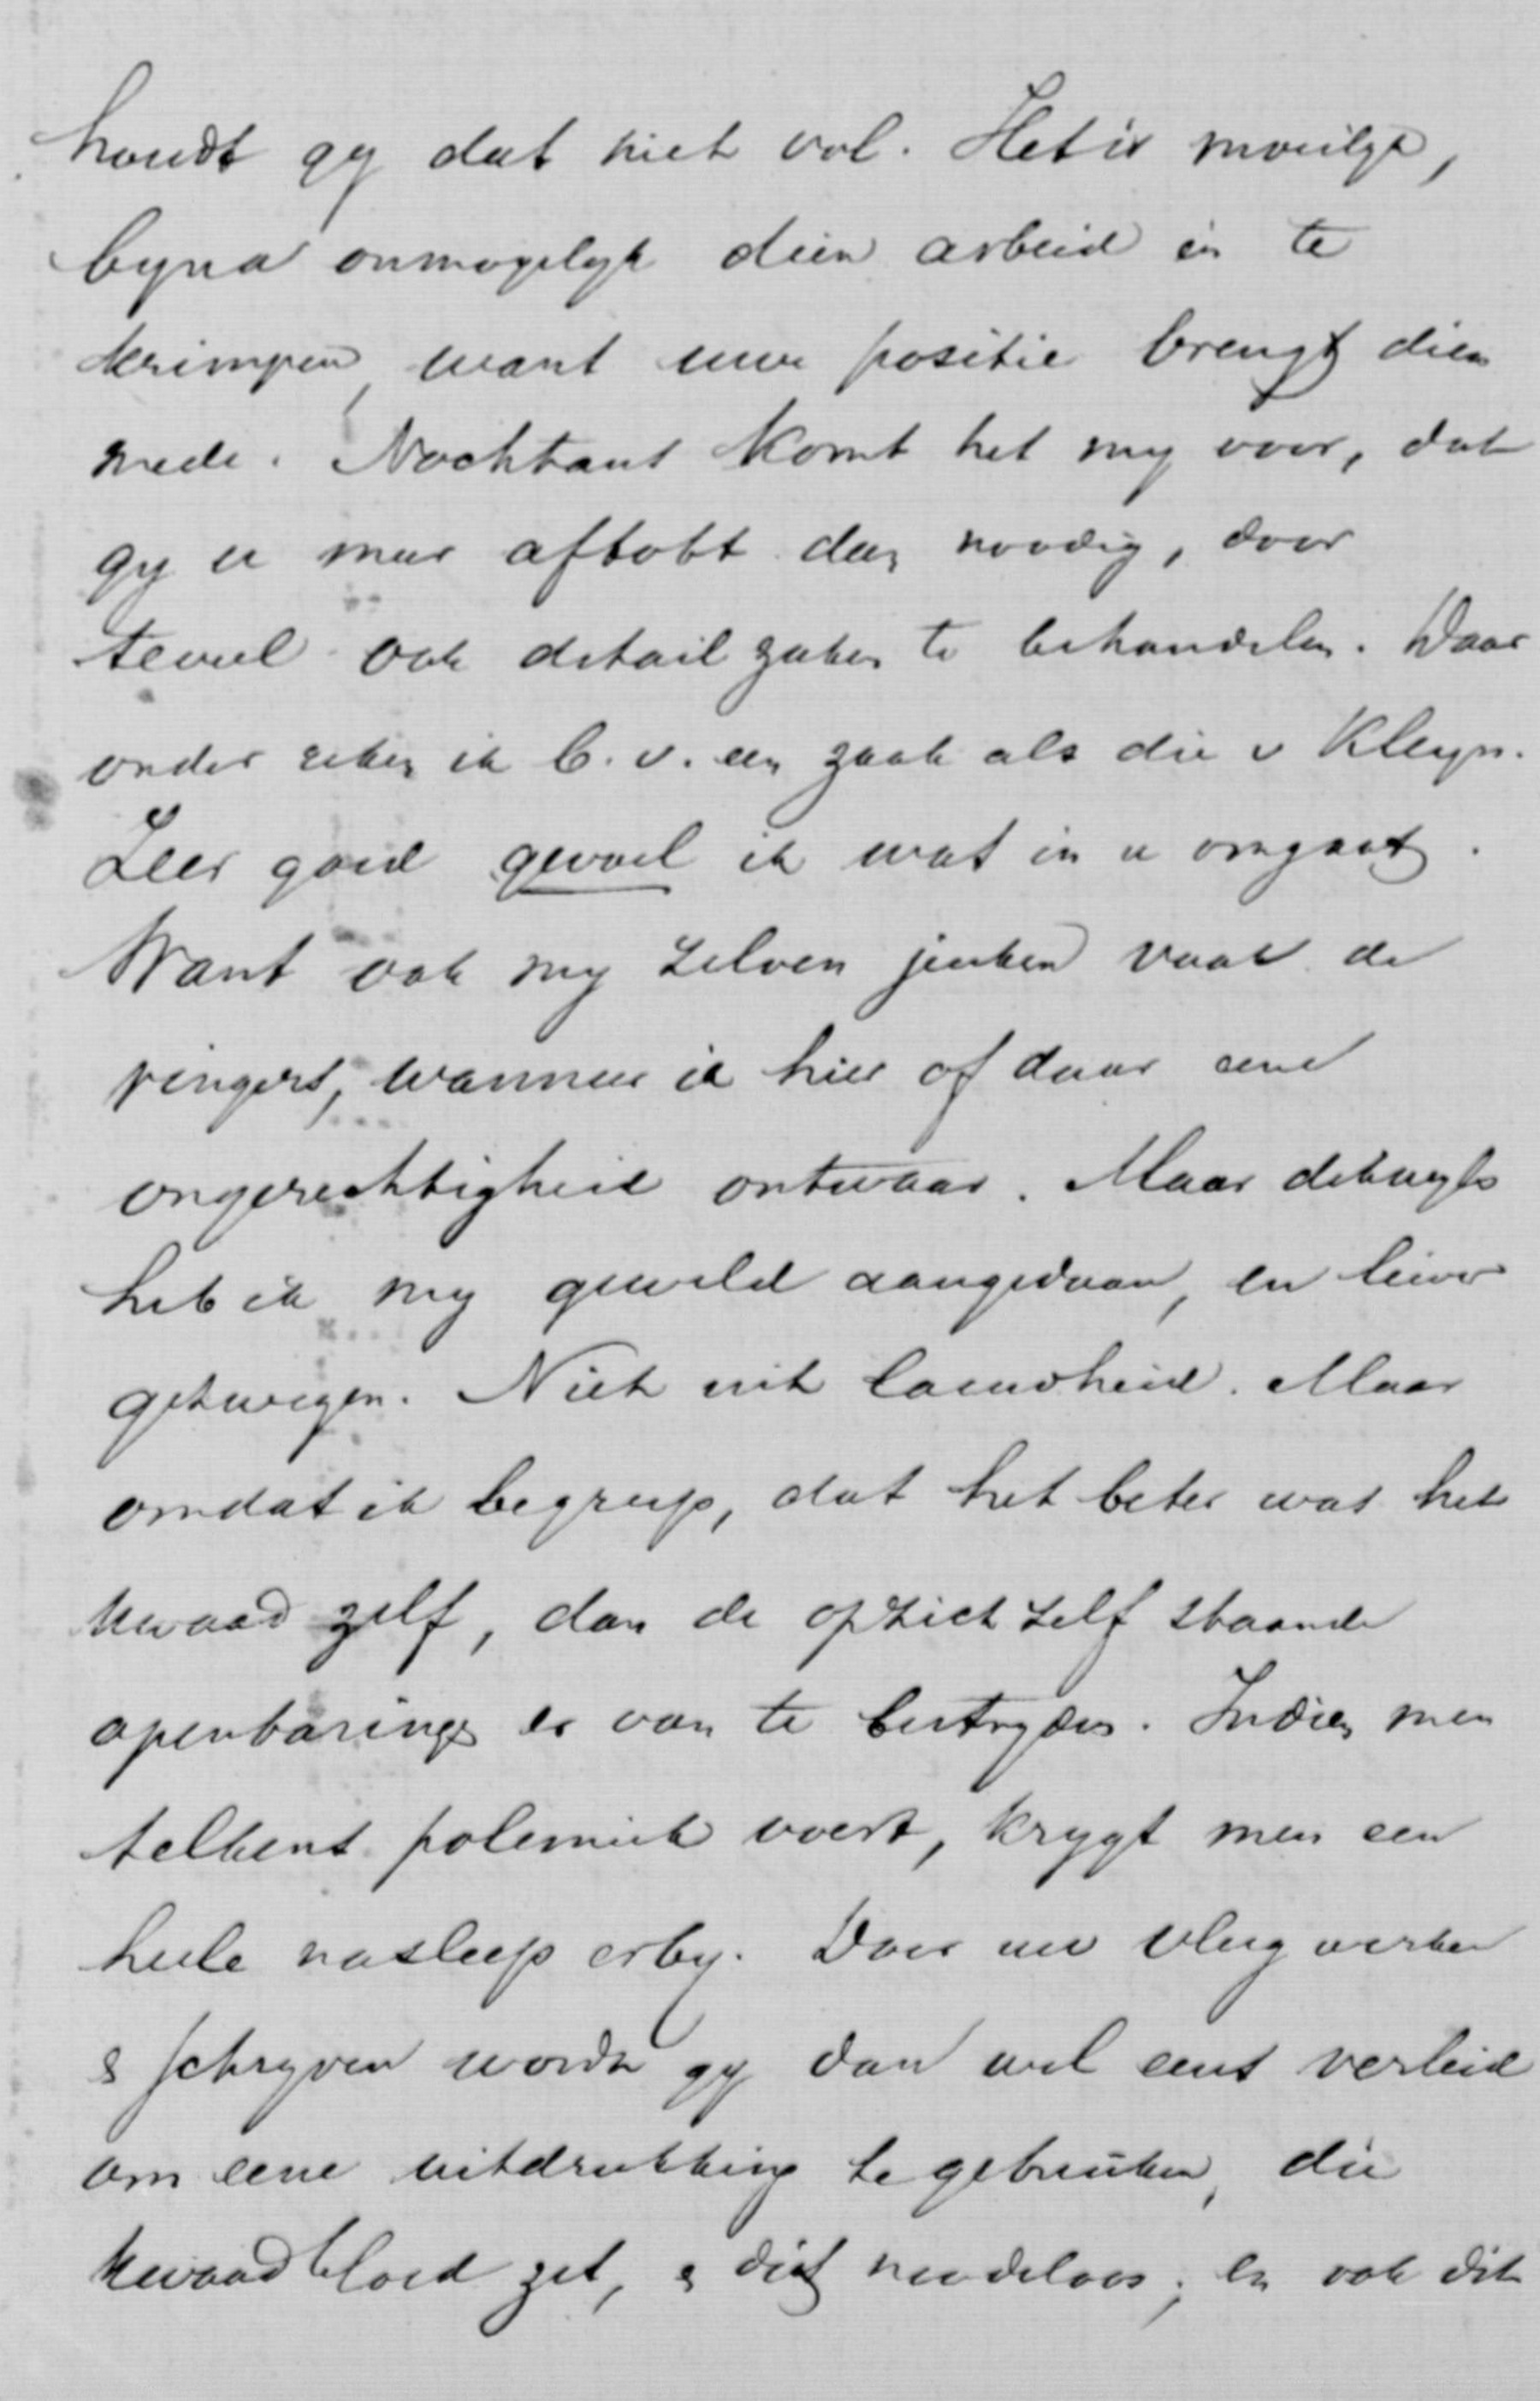 houdt gy dat niet vol. Het is moeilyk,
byna onmogelyk dien arbeid in te
krimpen, want uwe positie brengt dien
mede. Nochtans komt het my voor, dat
gy u meer aftobt dan noodig, door
teveel ook detail zaken te behandelen. Daar
onder reken ik b.v. een zaak als die v Kleyn.
Zeer goed gevoel ik wat in u omgaat.
Want ook my zelven jeuken vaak de
vingers, wanneer ik hier of daar eene
ongerechtigheid ontwaar. Maar dikwyls
heb ik my geweld aangedaan, en liever
gezwegen. Niet uit laauwheid. Maar
omdat ik begreep, dat het beter was het
kwaad zelf, dan de opzich zelf staande
openbaringen er van te bestryden. Indien men
telkens polemiek voert, krygt men een
heele nasleep erby. Door uw vlug werken
& schryven wordt gy dan wel eens verleid
om eene uitdrukking te gebruiken, die
kwaad bloed zet, & dist noodeloos; en ook dit